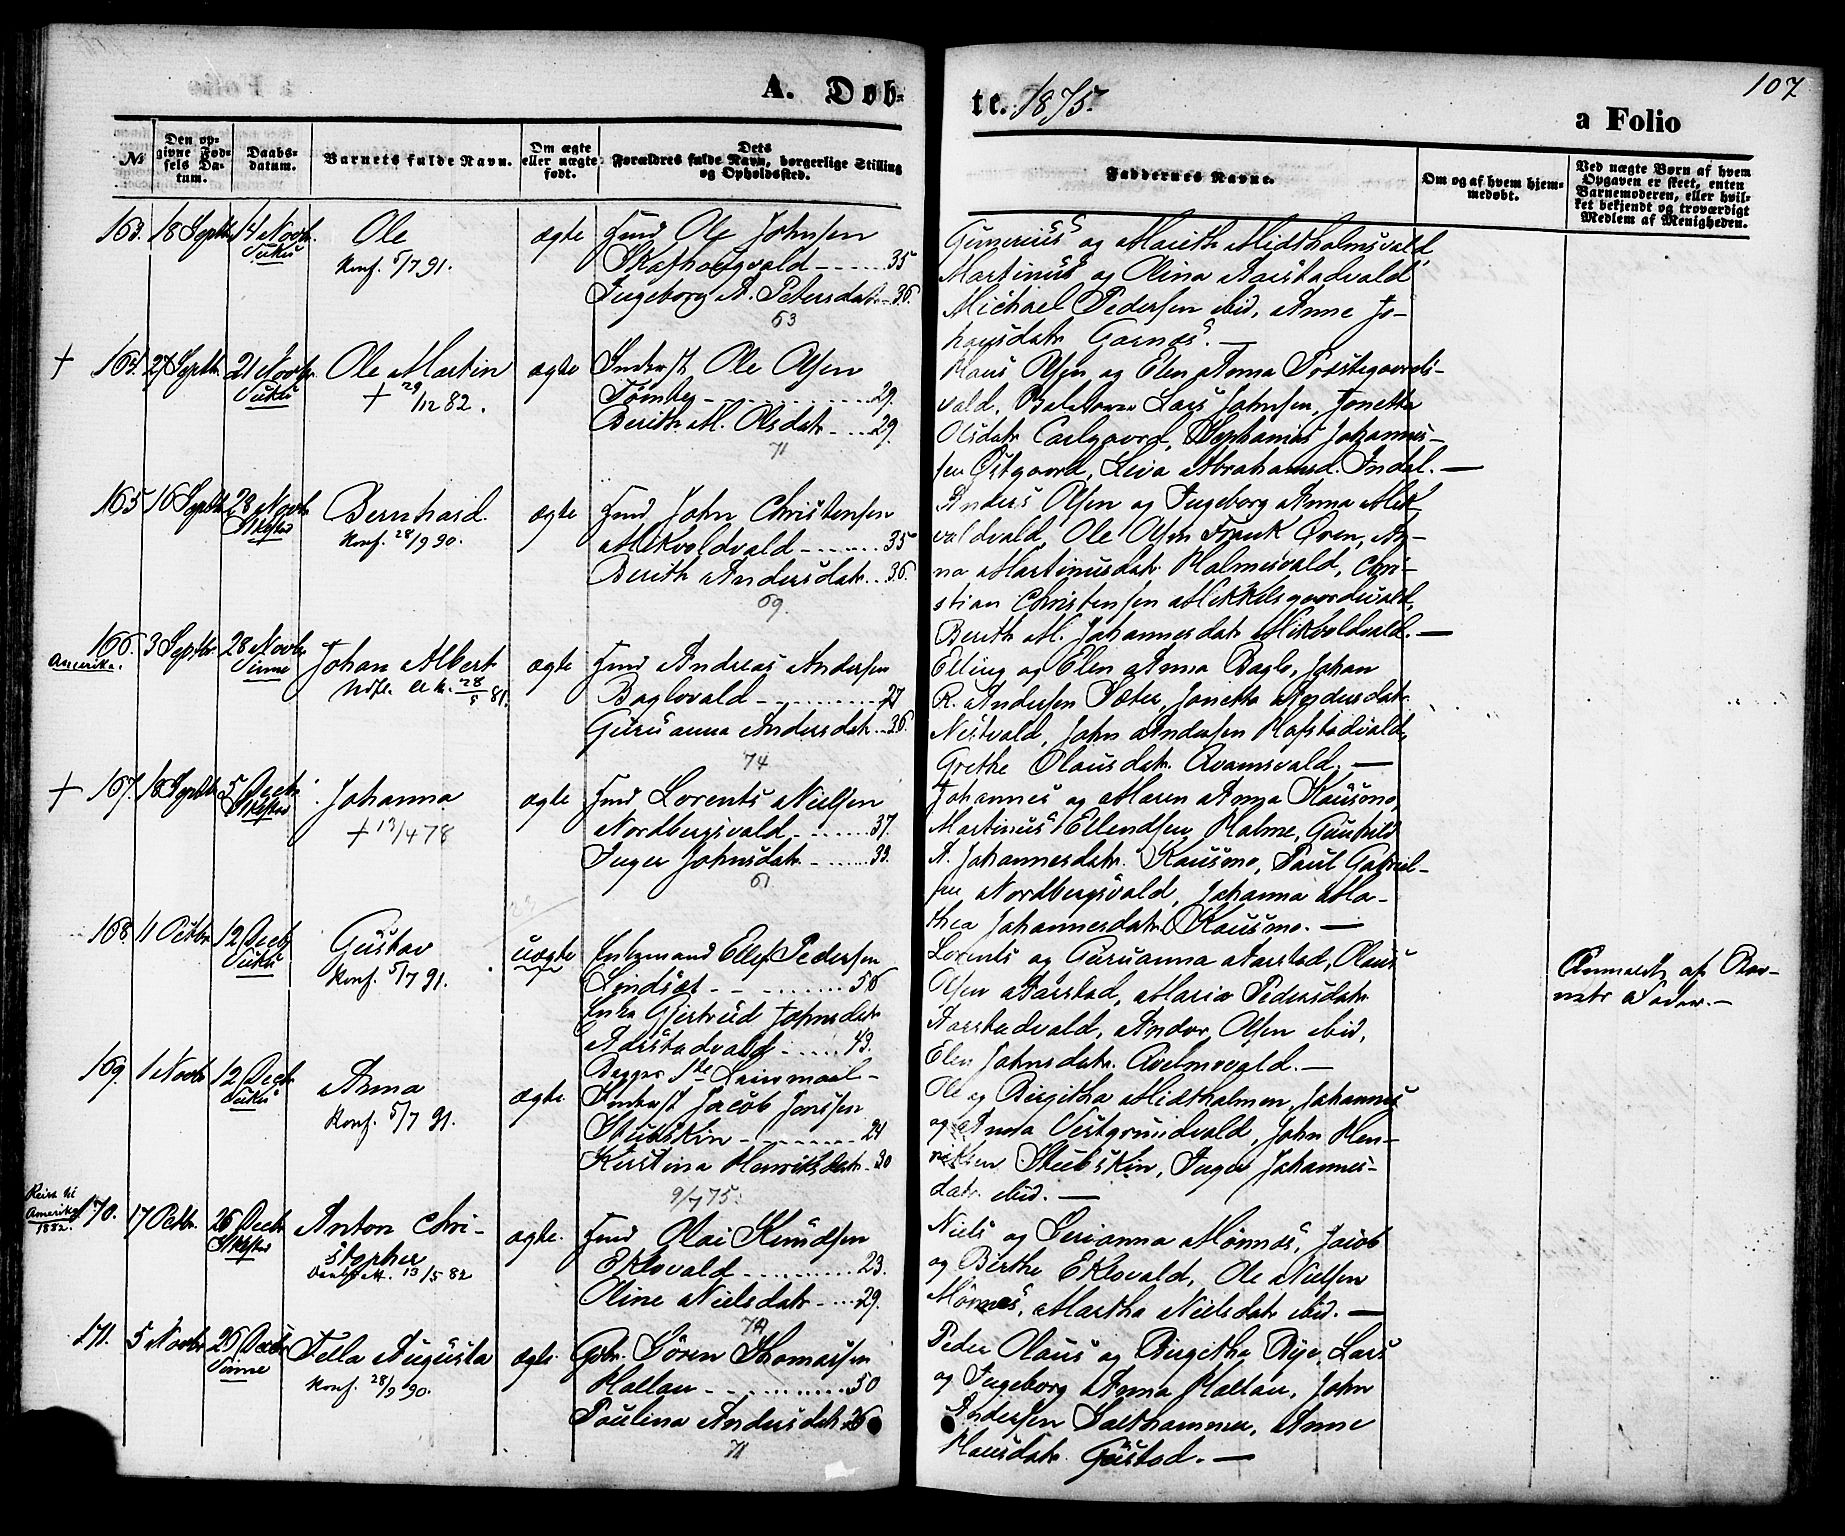 107
A. Døb-
te. 1875.
a Folio
№
Den op-
givne Fød-
sels Da-
tum.
Daabs-
datum.
Barnets fulde Navn.
Om ægte
eller uægte
født.
Dets
Forældres fulde Navn, borgerlige Stilling
og Opholdssted.
Faddernes Navne.
Om og af hvem hjem-
medøbt.
Ved uægte Børn af hvem
Opgaven er skeet, enten
Barnemoderen, eller hvil-
ket bekjendt og troværdigt
Medlem af Menigheden.
163. 18 Septbr. 14 Novbr. Vuku
Ole
Konf. 5/7 91.
ægte
Hmd Ole Johnsen
Skafhaugvald 35
Ingeborg A. Petersdatr. 36.
63
Gunerius og Mareth Midtholmsvald,
Martinus og Olina Aarstadvald
Michael Pedersen ibid, Anne Jo-
hansdatr. Garnæs. —
+ 164. 27 Septbr. 21 Novbr. Vuku
Ole Martin
+ 29/12 82.
ægte
Inderst Ole Olsen
29.
Bereth M. Olsdatr. 29.
71
Hans Olsen og Elen Anna Præstegaards-
vald, Lars Johnsen, Jonetta
Olsdatr. Carlgaard, Johannes-
sen Østgaard, Abrahamsd. Indal. —
165 16 Septbr. 28 Novbr.
Bernhard.
Konf. 28/9 90.
ægte
Hmd John Christensen
Mikvoldvald 35
Bereth Andersdatr. 36.
69.
Anders Olsen og Ingeborg Anna Mik-
valdvald, Ole Olsen Øren, An-
na Martinusdatr. Holmesvald, Chri-
stian Christensen Mikkelsgaardsvald,
Bereth M. Johannesdatr. Mikvoldvald. —
166. Amerika. 3 Septbr. 28 Novbr. Vinne
Johan Albert
Udfl. 28/5 81.
ægte
Hmd Andreas Andersen
Baglovald 27
Guruanna Andersdatr. 36.
74
Elling og Elen Anna Baglo, Johan
R. Andersen Sæter, Jonetta Andersdatr.
Nestvald, John Andersen Hofstadvald,
Grethe Olausdatr. Kvamsvald. —
+ 167. 18 Septbr. 5 Decbr.
Johanna
+ 13/4 78
ægte
Hmd Lorents Nielsen
Nordbergsvald 37.
Inger Johnsdatr. 33.
61
Johannes og Maren Anna Kausmo,
Martinus Ellendsen Holme, Gunhild
A. Johannesdatr. Kausmo, Paul Gabriel-
sen Nordbergsvald, Johanna Ma-
thea Johannesdatr. Kausmo. —
168. 11 Octbr. 12 Decbr. Vuku
Gustav
Konf. 5/7 91.
uægte
Enkemand Ellef Pedersen
Lindsæt 56
Enke Gjertrud Johnsdatr.
Aarstadvald 43.
Lorents og Guruanna Aarstad, Olaus
Olsen Aarstad, Maria Pedersdatr.
Aarstadvald, Andor Olsen ibid,
Elen Johnsdatr. Kvelmovald. —
Anmeldt af Bar-
nets Fader. —
169. 1 Novbr. 12 Decbr. Vuku
Anna
Konf. 5/7 91.
ægte
Inderst Jacob Jonssen
Stubskin 24
Kirstina Henriksdatr. 30
9/7 75.
Ole og Birgitha Midtholmen, Johannes
og Anna Vestgrundvald, John Hen-
riksen Stubskin, Inger Johannes-
datr. ibid. —
Reist til Amerika 1882. 170. 17 Octbr. 26 Decbr.
Anton Chri-
stopher
13/5 82
ægte.
Hmd Olai Knudsen
Eklovald 23.
Oline Nielsdatr. 29.
Niels og Serianna Mönnes, Jacob
og Birthe Eklovald, Ole Nielsen
Mönnes, Martha Nielsdatr. ibid. —
171. 5 Novbr. 26 Decbr. Vinne
Tella Augusta
Konf. 28/9 90.
ægte.
Gbr. Sören Thomassen
Hallan 50
Paulina Andersdatr. 26
71
Peder Olaus og Birgitha Bye, Lars
og Ingeborg Anna Hallan, John
Andersen Salthammer, Anne
Hansdatr. Gustad. —